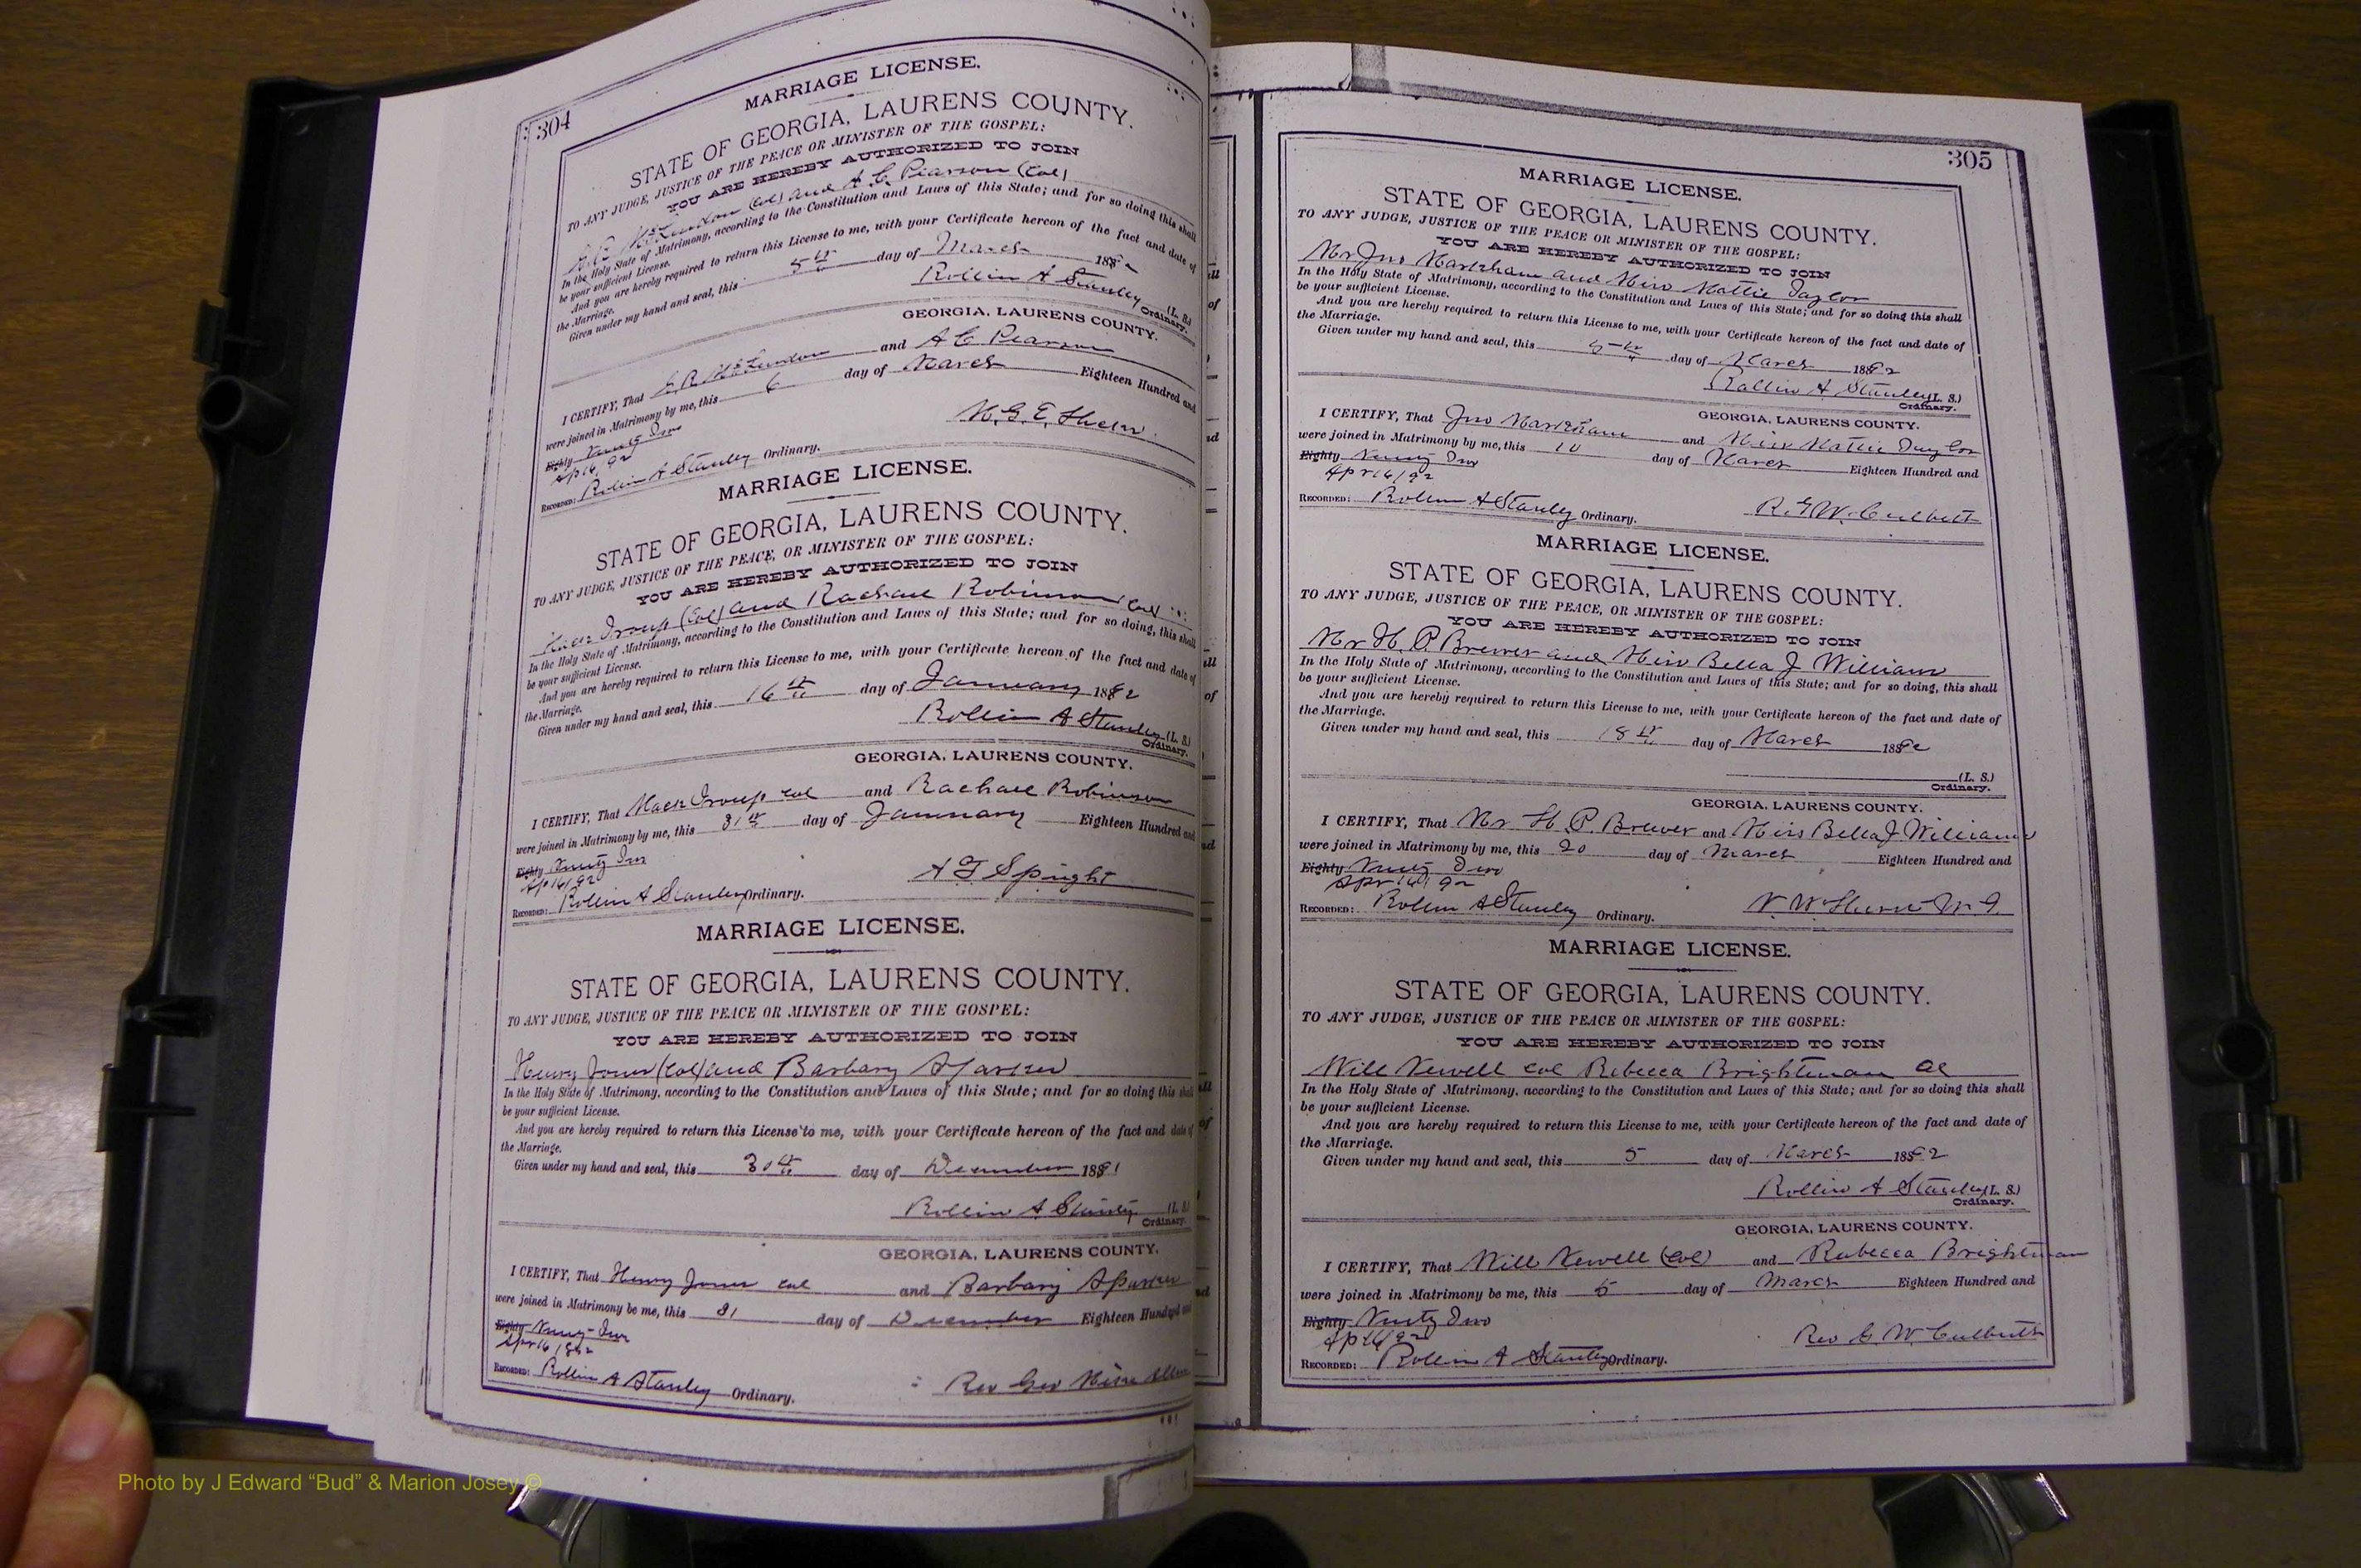 304
MARRIAGE LICENSE.
STATE OF GEORGIA, LAURENS COUNTY.
TO ANY JUDGE, JUSTICE OF THE PEACE OR MINISTER OF THE GOSPEL:
YOU ARE HEREBY AUTHORIZED TO JOIN
McLendon (Col) and A. C. Pearson (Col)
In the Holy State of Matrimony, according to the Constitution and Laws of this State; and for so doing this shall
be your sufficient License.
And you are hereby required to return this License to me, with your Certificate hereon of the fact and date of
the Marriage.
Given under my hand and seal, this 5th day of March 1892
Rollin A Stanley (L. S.)
Ordinary.
GEORGIA, LAURENS COUNTY.
I CERTIFY, That R McLendon and A C Pearson
were joined in Matrimony by me, this 6 day of March Eighteen Hundred and
Eighty Ninety Two
Ap 16, 92
RECORDED: Rollin A Stanley Ordinary.
MARRIAGE LICENSE.
STATE OF GEORGIA, LAURENS COUNTY.
TO ANY JUDGE, JUSTICE OF THE PEACE, OR MINISTER OF THE GOSPEL:
YOU ARE HEREBY AUTHORIZED TO JOIN
Troup (Col) and Rachael Robinson Col
In the Holy State of Matrimony, according to the Constitution and Laws of this State; and for so doing, this shall
be your sufficient License.
And you are hereby required to return this License to me, with your Certificate hereon of the fact and date of
the Marriage.
Given under my hand and seal, this 16th day of January 1892
Rollin A Stanley (L. S.)
Ordinary.
GEORGIA, LAURENS COUNTY.
I CERTIFY, That Mack Troup col and Rachael Robinson
were joined in Matrimony by me, this 31st day of January Eighteen Hundred and
Eighty Ninety Two
Ap 16/92
RECORDED: Rollin A Stanley Ordinary.
A F Spright
MARRIAGE LICENSE.
STATE OF GEORGIA, LAURENS COUNTY.
TO ANY JUDGE, JUSTICE OF THE PEACE OR MINISTER OF THE GOSPEL:
YOU ARE HEREBY AUTHORIZED TO JOIN
Henry Jones (Col) and Barbary
In the Holy State of Matrimony, according to the Constitution and Laws of this State; and for so doing this shall
be your sufficient License.
And you are hereby required to return this License to me, with your Certificate hereon of the fact and date of
the Marriage.
Given under my hand and seal, this 30th day of December 1891
Rollin A Stanley (L. S.)
Ordinary.
GEORGIA, LAURENS COUNTY.
I CERTIFY, That Henry Jones col and Barbary
were joined in Matrimony be me, this 31 day of December Eighteen Hundred and
Eighty Ninety-Two
Apr 16/892
RECORDED: Rollin A Stanley Ordinary.
Rev Geo
305
MARRIAGE LICENSE.
STATE OF GEORGIA, LAURENS COUNTY.
TO ANY JUDGE, JUSTICE OF THE PEACE OR MINISTER OF THE GOSPEL:
YOU ARE HEREBY AUTHORIZED TO JOIN
Mr Jno Markham and Miss Mattie Taylor
In the Holy State of Matrimony, according to the Constitution and Laws of this State; and for so doing this shall
be your sufficient License.
And you are hereby required to return this License to me, with your Certificate hereon of the fact and date of
the Marriage.
Given under my hand and seal, this 5th day of March 1892
Rollin A Stanley (L. S.)
Ordinary.
GEORGIA, LAURENS COUNTY.
I CERTIFY, That Jno Markham and Miss Mattie Taylor
were joined in Matrimony by me, this 10 day of March Eighteen Hundred and
Eighty Ninety Two
Apr 16/92
RECORDED: Rollin A Stanley Ordinary.
MARRIAGE LICENSE.
STATE OF GEORGIA, LAURENS COUNTY.
TO ANY JUDGE, JUSTICE OF THE PEACE, OR MINISTER OF THE GOSPEL:
YOU ARE HEREBY AUTHORIZED TO JOIN
Mr H. P. Brewer and Miss Bella J Williams
In the Holy State of Matrimony, according to the Constitution and Laws of this State; and for so doing, this shall
be your sufficient License.
And you are hereby required to return this License to me, with your Certificate hereon of the fact and date of
the Marriage.
Given under my hand and seal, this 18th day of March 1892
(L. S.)
Ordinary.
GEORGIA, LAURENS COUNTY.
I CERTIFY, That Mr H. P. Brewer and Miss Bella J. Williams
were joined in Matrimony by me, this 20 day of March Eighteen Hundred and
Eighty Ninety Two
Apr 16/92
RECORDED: Rollin A Stanley Ordinary.
MARRIAGE LICENSE.
STATE OF GEORGIA, LAURENS COUNTY.
TO ANY JUDGE, JUSTICE OF THE PEACE OR MINISTER OF THE GOSPEL:
YOU ARE HEREBY AUTHORIZED TO JOIN
Will Newell col Rebecca Brightman
In the Holy State of Matrimony, according to the Constitution and Laws of this State; and for so doing this shall
be your sufficient License.
And you are hereby required to return this License to me, with your Certificate hereon of the fact and date of
the Marriage.
Given under my hand and seal, this 5 day of March 1892
Rollin A Stanley (L. S.)
Ordinary.
GEORGIA, LAURENS COUNTY.
I CERTIFY, That Will Newell (Col) and Rebecca Brightman
were joined in Matrimony be me, this 5 day of March Eighteen Hundred and
Eighty Ninety Two
Ap 16/92
RECORDED: Rollin A Stanley Ordinary.
Rev G. W. Culbreth
Photo by J Edward “Bud” & Marion Josey ©